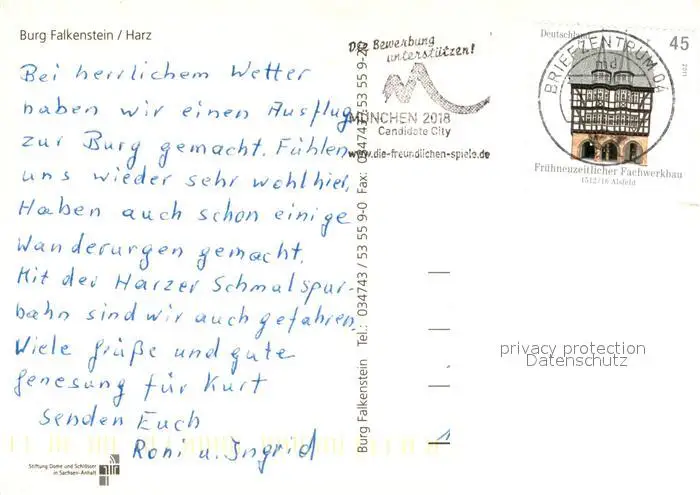 Burg Falkenstein / Harz
Bei herrlichem Wetter
haben wir einen Ausflug
zur Burg gemacht. Fühlen
uns wieder sehr wohl hier,
Haben auch schon einige
Wanderungen gemacht.
Mit der Harzer Schmalspur-
bahn sind wir auch gefahren.
Viele Grüße und gute
Genesung für Kurt
senden Euch
Roni u. Ingrid
Stiftung Dome und Schlösser
in Sachsen-Anhalt
Burg Falkenstein Tel.: 034743 / 53 55 9-0 Fax: 034743 / 53 55 9-
Die Bewerbung
unterstützen!
MÜNCHEN 2018
Candidate City
www.die-freundlichen-spiele.de
BRIEFZENTRUM 04
md
Deutschland
45
2011
Frühneuzeitlicher Fachwerkbau
1512/16 Alsfeld
privacy protection
Datenschutz